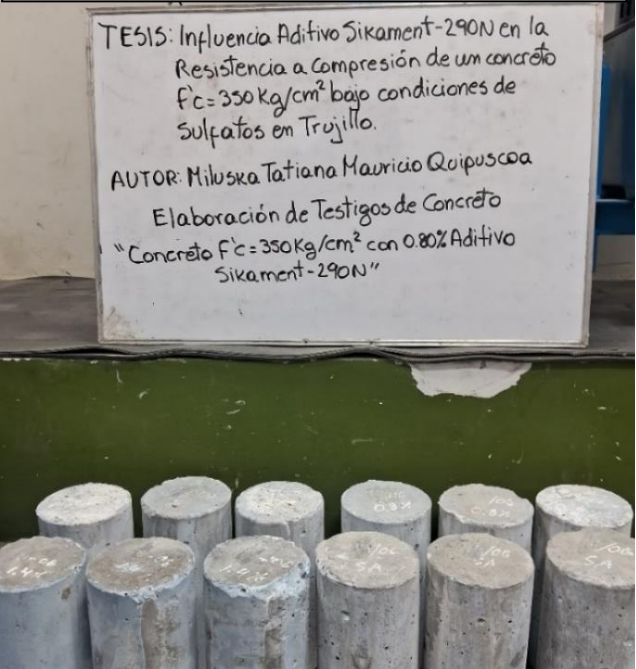 TESIS: Influencia Aditivo Sikament-290N en la
Resistencia a Compresión de un concreto
f'c=350 kg/cm² bajo condiciones de
Sulfatos en Trujillo.
AUTOR: Miluska Tatiana Mauricio Quipuscoa
Elaboración de Testigos de Concreto
"Concreto F'c=350 Kg/cm² con 0.80% Aditivo
Sikament-290N"
0.8%
SA
SA
SA